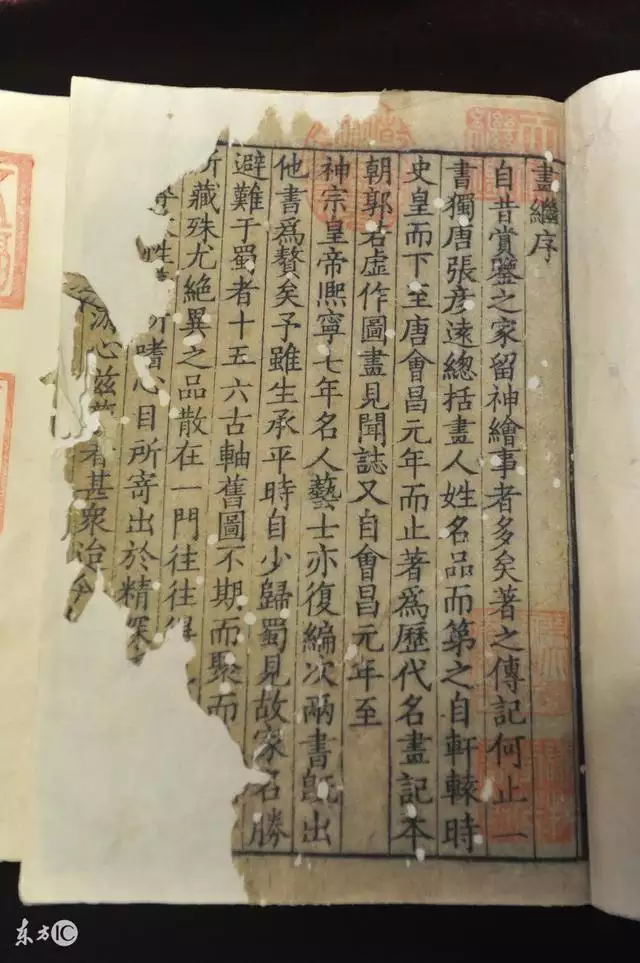 畫繼序
自昔賞鑒之家留神繪事者多矣著之傳記何止一
書獨唐張彥遠總括畫人姓名品而第之自軒轅時
史皇而下至唐會昌元年而止著爲歷代名畫記本
朝郭若虛作圖畫見聞誌又自會昌元年至
神宗皇帝熙寧七年名人藝士亦復編次兩書旣出
他書爲贅矣予雖生承平時自少歸蜀見故家名勝
避難于蜀者十五六古軸舊圖不期而聚而
所藏殊尤絕異之品散在一門往往得
性
所嗜心目所寄出於精深
心茲
者甚衆冶
东方IC